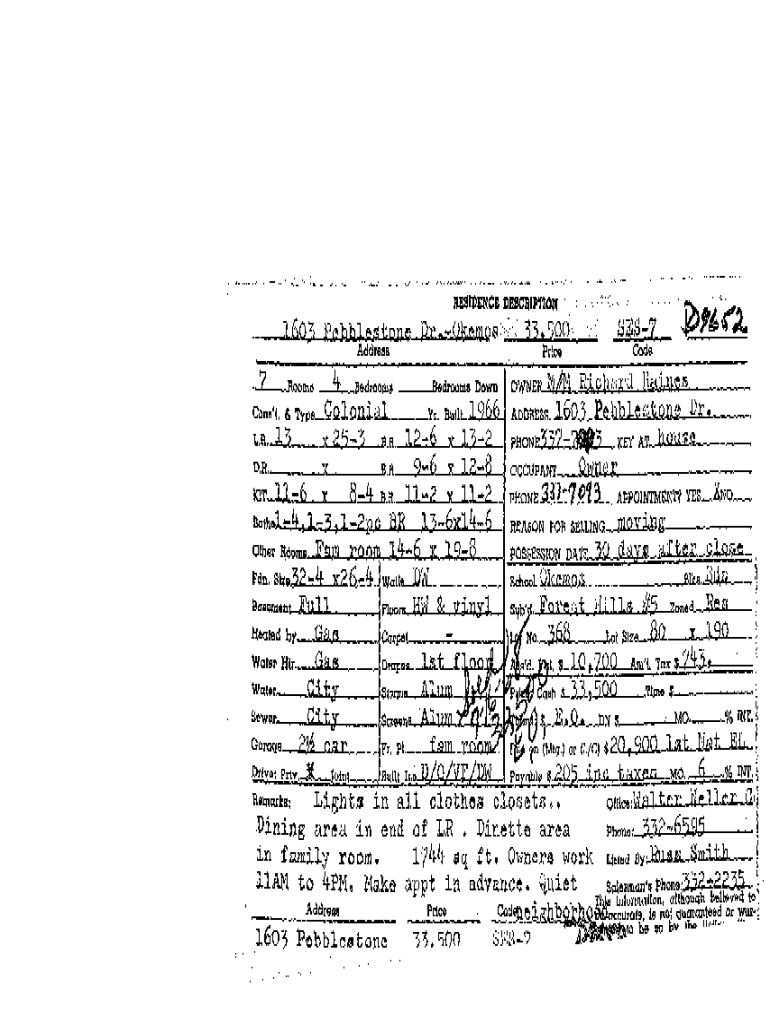 RESIDENCE DESCRIPTION
1603 Pebblestone Dr.-Okemos 33,500 SES-7 D9652
Address Price Code
7 Rooms 4 Bedrooms Bedrooms Down OWNER M/M Richard Haines
Cons't. & Type Colonial Yr. Built 1966 ADDRESS 1603 Pebblestone Dr.
L.R. 13 x 25-3 B.R. 12-6 x 13-2 PHONE 337-7093 KEY AT house
D.R. x B.R. 9-6 x 12-8 OCCUPANT Owner
KIT. 11-6 x 8-4 B.R. 11-2 x 11-2 PHONE 337-7093 APPOINTMENT? YES X NO
Baths 1-4,1-3,1-2pc BR 13-6x14-6 REASON FOR SELLING moving
Other Rooms Fam room 14-6 x 19-8 POSSESSION DATE 30 days after close
Fdn. Size 32-4 x26-4 Walls DW School Okemos
Basement Full Floors HW & vinyl Sub'd. Forest Hills #5 Zoned Res
Heated by Gas Carpet - Lot No. 368 Lot Size 80 x 190
Water Htr. Gas Drapes 1st floor Ass'd. Val. $ 10,700 An'l. Tax $ 743.
Water City Storms Alum Cash $ 33,500 Time $
Sewer City Screens Alum $ E.O. DN $ MO. % INT.
Garage 2½ car Fr. Pl. fam room (Mtg.) or C./C) $20,900 1st Nat EL
Drive: Priv. X Joint Built Ins D/O/VF/DW Payable $ 205 inc taxes MO. 6 % INT.
Remarks: Lights in all clothes closets.. Office: Walter Neller C
Dining area in end of LR . Dinette area Phone: 332-6595
in family room. 1744 sq ft. Owners work Listed By: Russ Smith
11AM to 4PM. Make appt in advance. Quiet Salesman's Phone: 332-2235
This information, although believed to
Address Price Code neighborhood accurate, is not guaranteed or war-
to be so by the
1603 Pebblestone 33,500 SES-7